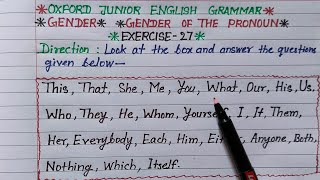 *OXFORD JUNIOR ENGLISH GRAMMAR
*GENDER* *GENDER OF THE PRONOUN
*EXERCISE-27*
Direction: Look at the box and answer the questions
given below—
This, That, She, Me, You, What, Our, His, Us,
Who, They, He, Whom, Yourself, I, It, Them,
Her, Everybody, Each, Him, Either, Anyone, Both,
Nothing, Which, Itself.